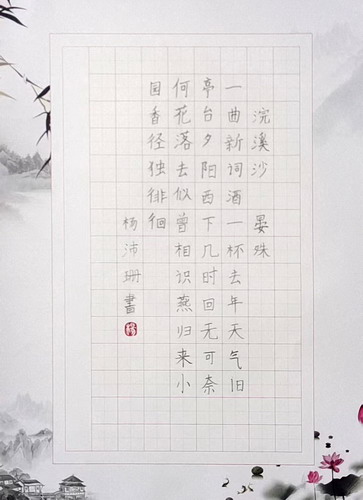 浣溪沙 晏殊
一曲新词酒一杯去年天气旧
亭台夕阳西下几时回无可奈
何花落去似曾相识燕归来小
园香径独徘徊
杨沛珊書